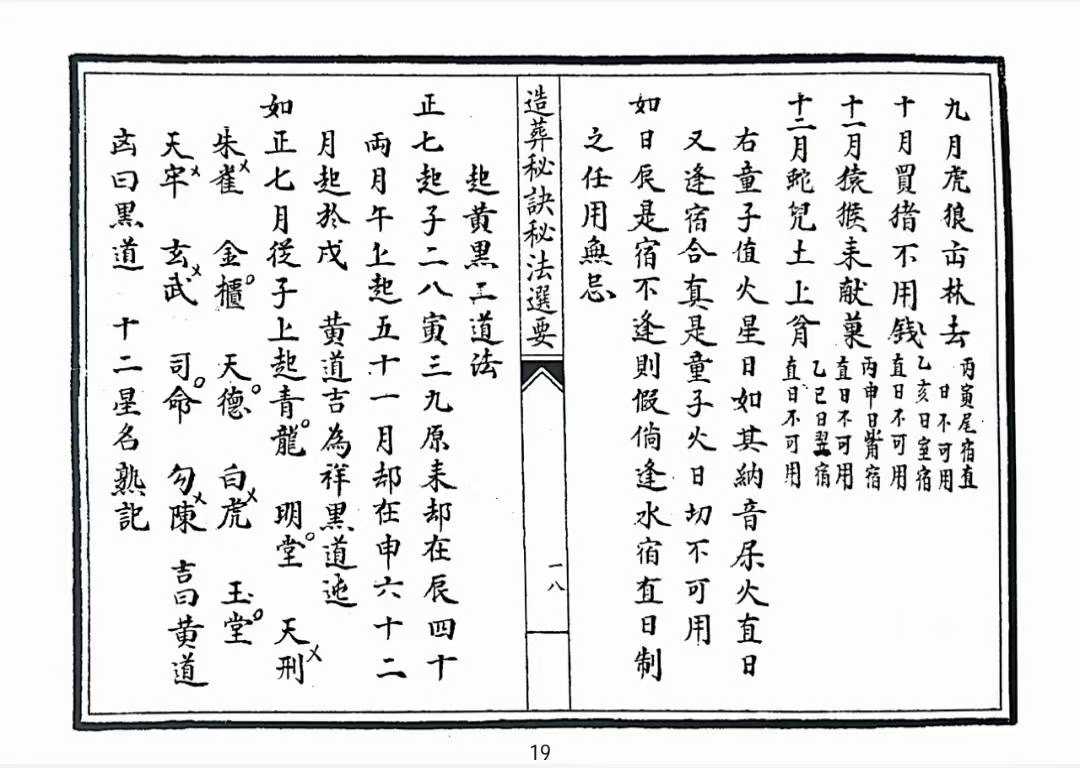 九月虎狼出林去丙寅尾宿直
日不可用
十月買猪不用銭乙亥日室宿
直日不可用
十一月猿猴来献菓丙申日觜宿
直日不可用
十二月蛇兒土上貟乙巳日翌宿
直日不可用
右童子值火星日如其納音屎火直日
又逢宿合真是童子火日切不可用
如日辰是宿不逢則假倘逢水宿直日制
之任用無忌
造葬秘訣秘法選要
一八
起黄黑二道法
正七起子二八寅三九原来却在辰四十
兩月午上起五十一月却在申六十二
月起於戌 黄道吉為祥黑道迍
如正七月從子上起青龍○ 明堂○ 天刑×
朱雀× 金櫃○ 天德○ 白虎× 玉堂○
天牢× 玄武× 司命○ 勾陳× 吉曰黄道
凶曰黑道 十二星名熟記
19